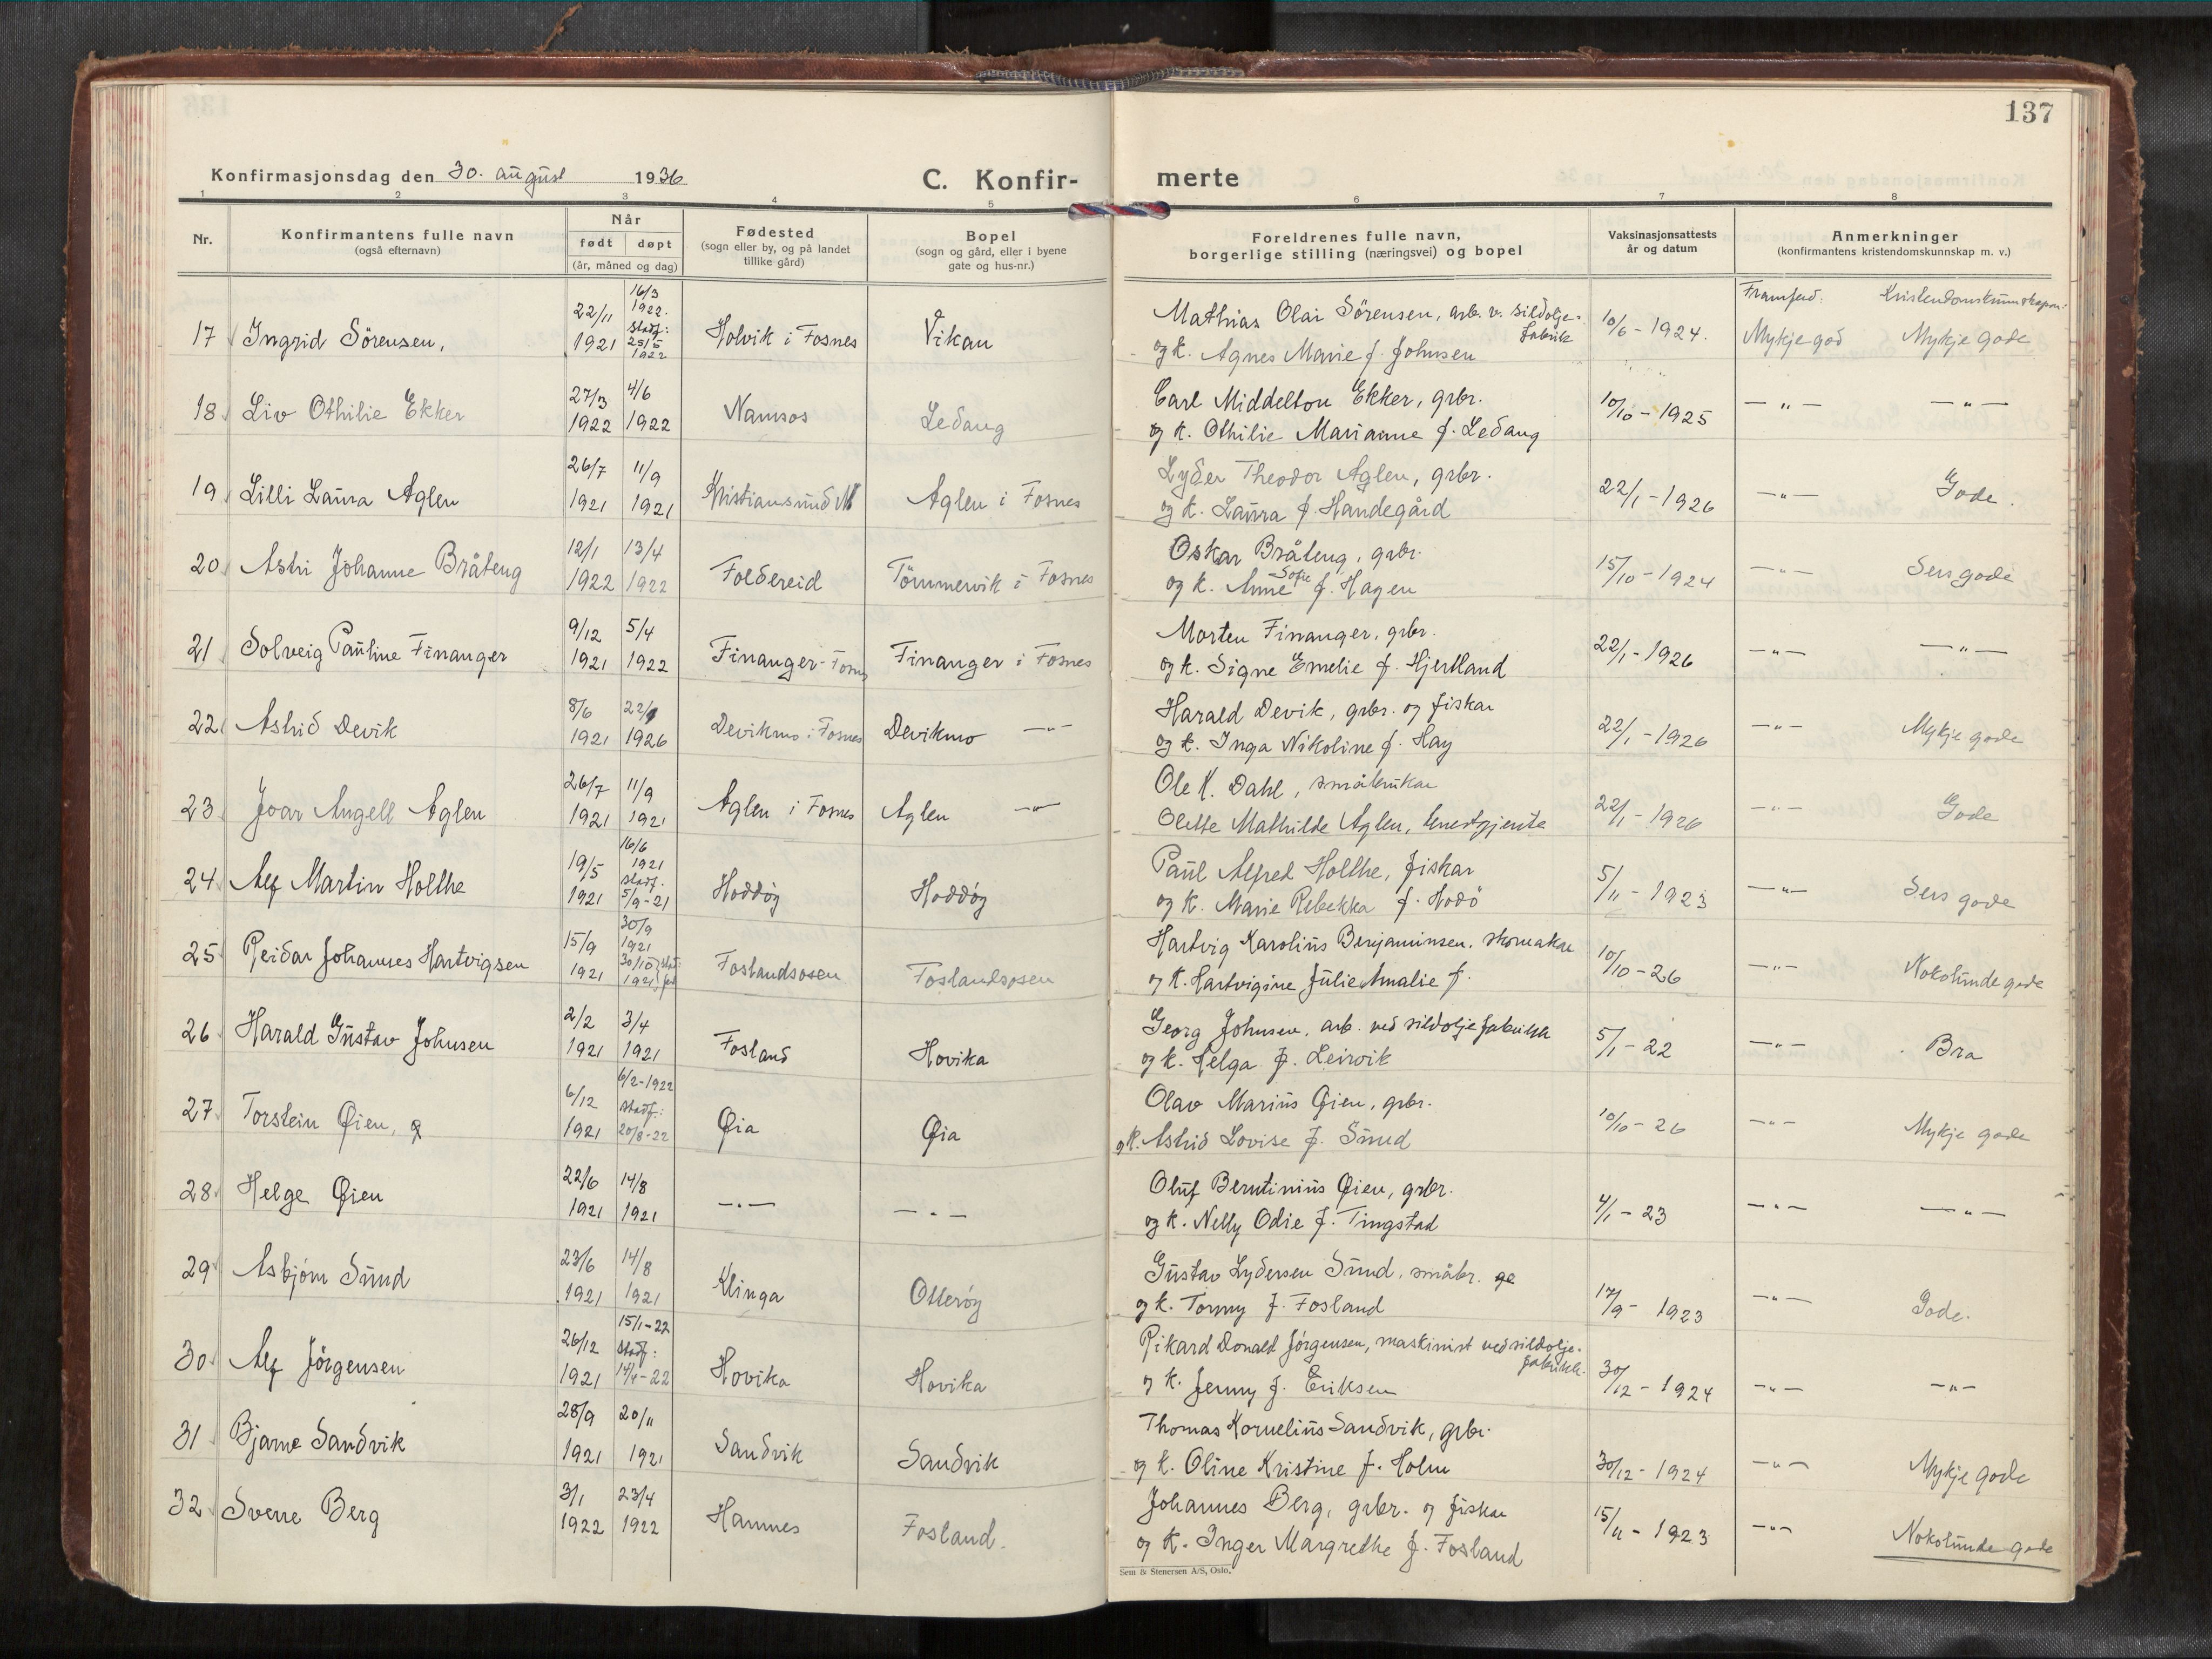 137
Konfirmasjonsdag den 30. august 1936
C. Konfir- merte
1 2 3 4 5 6 7 8
Nr.
Konfirmantens fulle navn (også efternavn)
Når født døpt (år, måned og dag)
Fødested (sogn eller by, og på landet tillike gård)
Bopel (sogn og gård, eller i byene gate og hus-nr.)
Foreldrenes fulle navn, borgerlige stilling (næringsvei) og bopel
Vaksinasjonsattests år og datum
Anmerkninger (konfirmantens kristendomskunnskap m. v.)
Framferd: Kristendomskunnskapen:
17 Ingrid Sörensen, 22/11 1921 16/3 1922. stadf: 25/5 1922 Holvik i Fosnes Vikan Mathias Olai Sörensen, arb. v. sildoljefabrik 10/6 - 1924. Mykje god Mykje gode
og k. Agnes Marie f. Johnsen
18 Liv Othilie Ekker 27/3 1922 4/6 1922 Namsos Ledang Carl Middelton Ekker, grbr. 10/10 - 1925 — " — — " —
og k. Othilie Marianne f. Ledang
19 Lilli Laura Aglen 26/7 1921 11/9 1921 Kristiansund N Aglen i Fosnes Lyder Theodor Aglen, grbr. 22/1 - 1926 — " — Gode.
og k. Laura f. Handegård
20 Astri Johanne Bråteng 12/1 1922 13/4 1922 Foldereid Tömmervik i Fosnes Oskar Bråteng, grbr. 15/10 - 1924 — " — Sers gode
og k. Anne Sofie f. Hagen
21 Solveig Pauline Finanger 9/12 1921 5/4 1922 Finanger - Fosnes Finanger i Fosnes Morten Finanger, grbr. 22/1 - 1926 — " — — " —
og k. Signe Emelie f. Hjertland
22 Astrid Devik 8/6 1921 22/1 1926 Devikmo i Fosnes Devikmo — " — Harald Devik, grbr. og fiskar 22/1 - 1926 — " — Mykje gode
og k. Inga Nikoline f. Hay
23 Joar Angell Aglen 26/7 1921 11/9 1921 Aglen i Fosnes Aglen — " — Ole K. Dahl, småbrukar 22/1 - 1926 — " — Gode
Olette Mathilde Aglen, tenestgjente
24 Alf Martin Holthe 19/5 1921 16/6 1921 stadf. 5/9-21 Hoddöy Hoddöy Paul Alfred Holthe, fiskar 5/11 - 1923 — " — Sers gode
og k. Marie Rebekka f. Hodö
25 Reidar Johannes Hartvigsen 15/9 1921 30/9 1921 30/10 1921 Foslandsosen Foslandsosen Hartvig Karolius Benjaminsen, skomakar 10/10 - 26 — " — Nokolunde gode
og k. Hartvigine Julie Amalie f.
26 Harald Gustav Johnsen 2/2 1921 3/4 1921 Fosland Hovika Georg Johnsen, arb. ved sildoljefabrikk 5/1 - 22 — " — Bra
og k. Helga f. Leirvik
27 Torstein Øien, 6/12 1921 6/2-1922 stadf.: 20/8-22 Øia Øia Olav Marius Øien, grbr. 10/10 - 26 — " — Mykje gode
og k. Astrid Lovise f. Sund
28 Helge Øien 22/6 1921 14/8 1921 — " — — " — Oluf Berntinius Øien, grbr. 4/1 - 23 — " — — " —
og k. Nelly Odie f. Tingstad
29 Asbjörn Sund 23/6 1921 14/8 1921 Klinga Otteröy Gustav Lydersen Sund, småbr. 17/9 - 1923 — " — Gode.
og k. Tormy f. Fosland
30 Alf Jörgensen 26/12 1921 15/1-22 stadf: 14/4-22 Hovika Hovika Rikard Donald Jörgensen, maskinist ved sildoljefabrikk. 30/12 - 1924 — " — — " —
og k. Jenny f. Eriksen
31 Bjarne Sandvik 28/9 1921 20/11 1921 Sandvik Sandvik Thomas Kornelius Sandvik, grbr. 30/12 - 1924 — " — Mykje gode
og k. Oline Kristine f. Holm
32 Sverre Berg 3/1 1922 23/4 1922 Hamnes Fosland. Johannes Berg, grbr. og fiskar 15/11 - 1923 — " — Nokolunde gode
og k. Inger Margrethe f. Fosland
Sem & Stenersen A/S, Oslo.